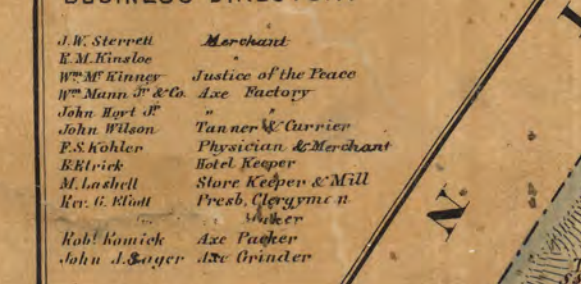 BUSINESS DIRECTORY
J.W. Sterrett Merchant
K.M. Kinsloe "
Wm. Mc Kinney Justice of the Peace
Wm Mann Jr & Co. Axe Factory
John Hoyt Jr. " "
John Wilson Tanner & Currier
F.S. Kohler Physician & Merchant
B. Etrick Hotel Keeper
M. Lashell Store Keeper & Mill
Rev. G. Eliott Presb. Clergymen
Robt. Komick Axe Packer
John J. Sager Axe Grinder
N.